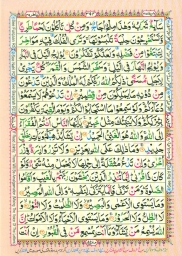 سَآئِغٌ شَرَابُهٗ وَهٰذَا مِلْحٌ اُجَاجٌ وَمِنْ كُلٍّ تَاْكُلُوْنَ لَحْمًا طَرِيًّا
وَّتَسْتَخْرِجُوْنَ حِلْيَةً تَلْبَسُوْنَهَا وَتَرَى الْفُلْكَ فِيْهِ مَوَاخِرَ
لِتَبْتَغُوْا مِنْ فَضْلِهٖ وَلَعَلَّكُمْ تَشْكُرُوْنَ يُوْلِجُ الَّيْلَ فِى
النَّهَارِ وَيُوْلِجُ النَّهَارَ فِى الَّيْلِ وَسَخَّرَ الشَّمْسَ وَالْقَمَرَ كُلٌّ يَّجْرِىْ
لِاَجَلٍ مُّسَمًّى ذٰلِكُمُ اللّٰهُ رَبُّكُمْ لَهُ الْمُلْكُ وَالَّذِيْنَ تَدْعُوْنَ
مِنْ دُوْنِهٖ مَا يَمْلِكُوْنَ مِنْ قِطْمِيْرٍ اِنْ تَدْعُوْهُمْ لَا
يَسْمَعُوْا دُعَآءَكُمْ وَلَوْ سَمِعُوْا مَا اسْتَجَابُوْا لَكُمْ وَيَوْمَ الْقِيٰمَةِ
يَكْفُرُوْنَ بِشِرْكِكُمْ وَلَا يُنَبِّئُكَ مِثْلُ خَبِيْرٍ يٰۤاَيُّهَا النَّاسُ اَنْتُمُ الْفُقَرَآءُ
اِلَى اللّٰهِ وَاللّٰهُ هُوَ الْغَنِىُّ الْحَمِيْدُ اِنْ يَّشَاْ يُذْهِبْكُمْ وَيَاْتِ بِخَلْقٍ
جَدِيْدٍ وَمَا ذٰلِكَ عَلَى اللّٰهِ بِعَزِيْزٍ وَلَا تَزِرُ وَازِرَةٌ وِّزْرَ
اُخْرٰى وَاِنْ تَدْعُ مُثْقَلَةٌ اِلٰى حِمْلِهَا لَا يُحْمَلْ مِنْهُ شَىْءٌ وَّلَوْ
كَانَ ذَا قُرْبٰى اِنَّمَا تُنْذِرُ الَّذِيْنَ يَخْشَوْنَ رَبَّهُمْ بِالْغَيْبِ وَاَقَامُوا
الصَّلٰوةَ وَمَنْ تَزَكّٰى فَاِنَّمَا يَتَزَكّٰى لِنَفْسِهٖ وَاِلَى اللّٰهِ الْمَصِيْرُ
وَمَا يَسْتَوِى الْاَعْمٰى وَالْبَصِيْرُ وَلَا الظُّلُمٰتُ وَلَا النُّوْرُ
وَلَا الظِّلُّ وَلَا الْحَرُوْرُ وَمَا يَسْتَوِى الْاَحْيَآءُ وَلَا الْاَمْوَاتُ اِنَّ
اللّٰهَ يُسْمِعُ مَنْ يَّشَآءُ وَمَاۤ اَنْتَ بِمُسْمِعٍ مَّنْ فِى الْقُبُوْرِ اِنْ